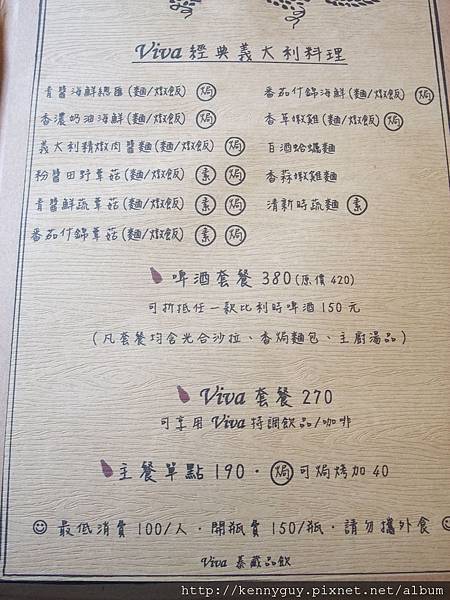 Viva 經典義大利料理
青醬海鮮總匯(麵/燉飯) 焗
香濃奶油海鮮(麵/燉飯) 焗
義大利精燉肉醬麵(麵/燉飯) 焗
粉醬田野草菇(麵/燉飯) 素 焗
青醬鮮蔬草菇(麵/燉飯) 素 焗
番茄什錦草菇(麵/燉飯) 素 焗
番茄什錦海鮮(麵/燉飯) 焗
香草嫩雞(麵/燉飯) 焗
白酒蛤蠣麵
香蒜嫩雞麵
清新時蔬麵 素
啤酒套餐 380(原價 420)
可折抵任一款比利時啤酒 150 元
(凡套餐均含光合沙拉、香焗麵包、主廚湯品)
Viva 套餐 270
可享用 Viva 特調飲品/咖啡
主餐單點 190 · 焗 可焗烤加 40
最低消費 100/人 · 開瓶費 150/瓶 · 請勿攜外食
Viva 泰藏品飲
http://kennyguy.pixnet.net/album